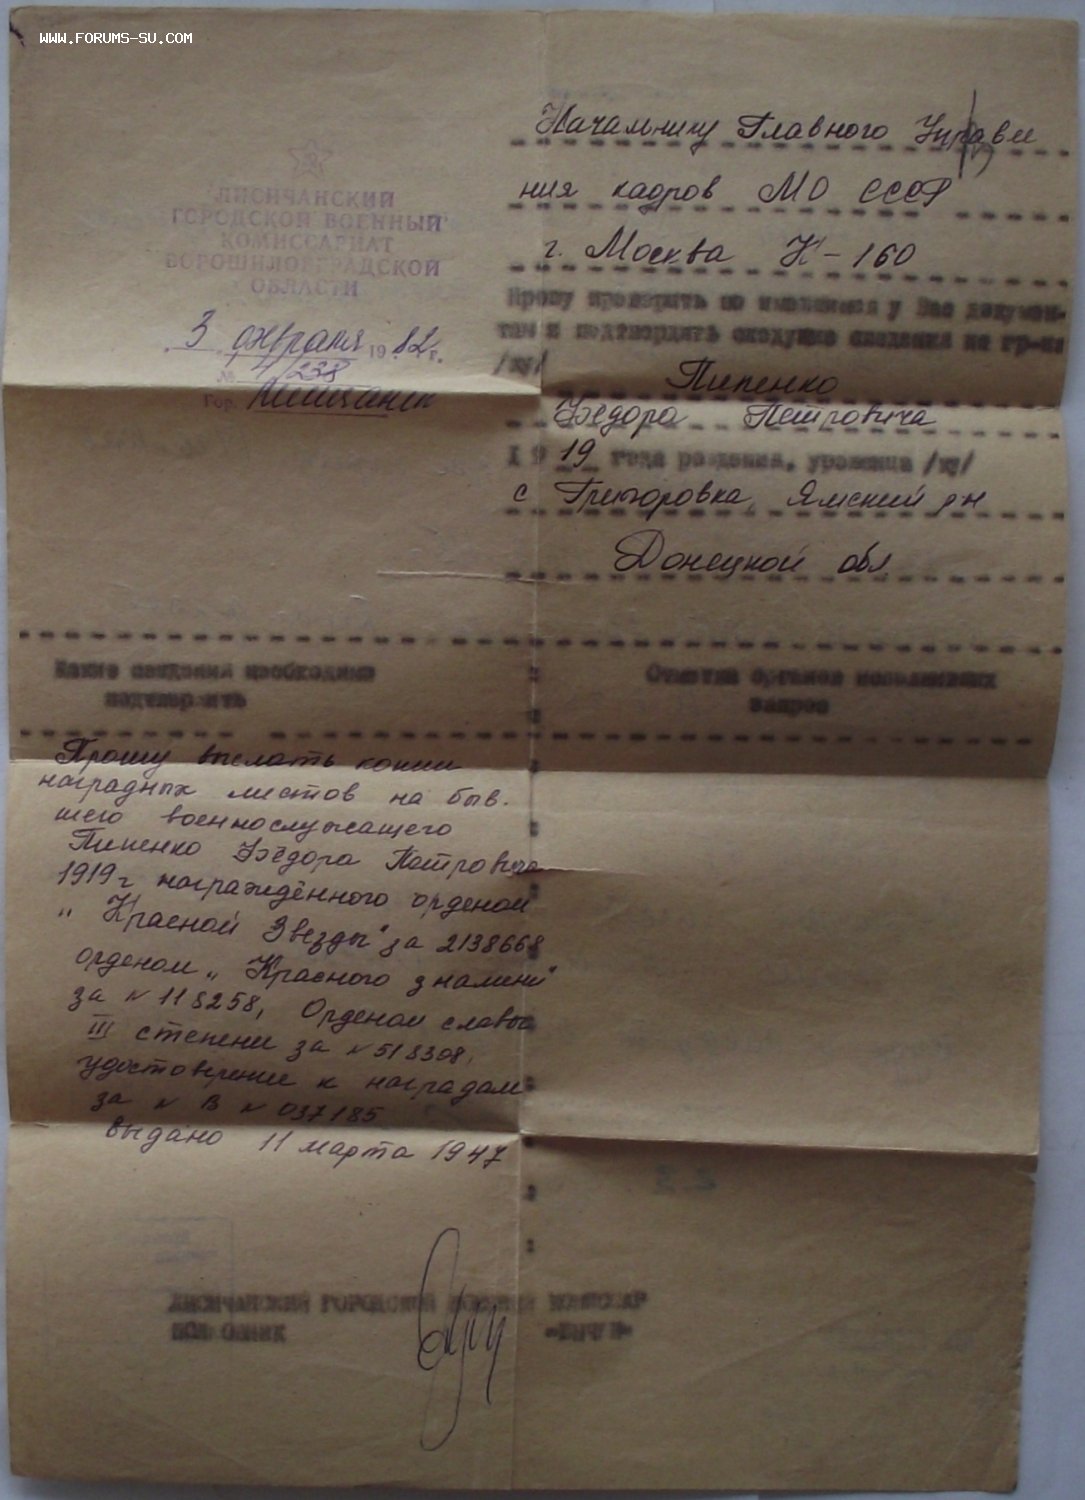 WWW.FORUMS-SU.COM
ЛИСИЧАНСКИЙ
ГОРОДСКОЙ ВОЕННЫЙ
КОМИССАРИАТ
ВОРОШИЛОВГРАДСКОЙ
ОБЛАСТИ
3 февраля 1982 г.
№ 4/238
Гор. Лисичанск
Начальнику Главного Управле
ния кадров МО СССР
г. Москва К-160
Прошу проверить по имеющимся у Вас докумен-
там и подтвердить следующие сведения на гр-на
/ку/ Пипенко
Фёдора Петровича
19 19 года рождения, уроженца /ку/
с Григоровка, Ямский р-н
Донецкой обл
Какие сведения необходимо
подтвердить
Отметки органов исполнивших
запрос
Прошу выслать копии
наградных листов на быв.
шего военнослужащего
Пипенко Фёдора Петровича
1919 г награждённого орденом
"Красной Звезды" за 2138668
орденом "Красного знамени"
за № 118258, Орденом славы
III степени за № 518308,
удостоверение к наградам
за № В № 037185
выдано 11 марта 1947
ЛИСИЧАНСКИЙ ГОРОДСКОЙ ВОЕННЫЙ КОМИССАР
ПОЛКОВНИК